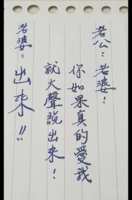 老公：老婆！
你如果真的愛我
就大聲說出來！
老婆：出來!!